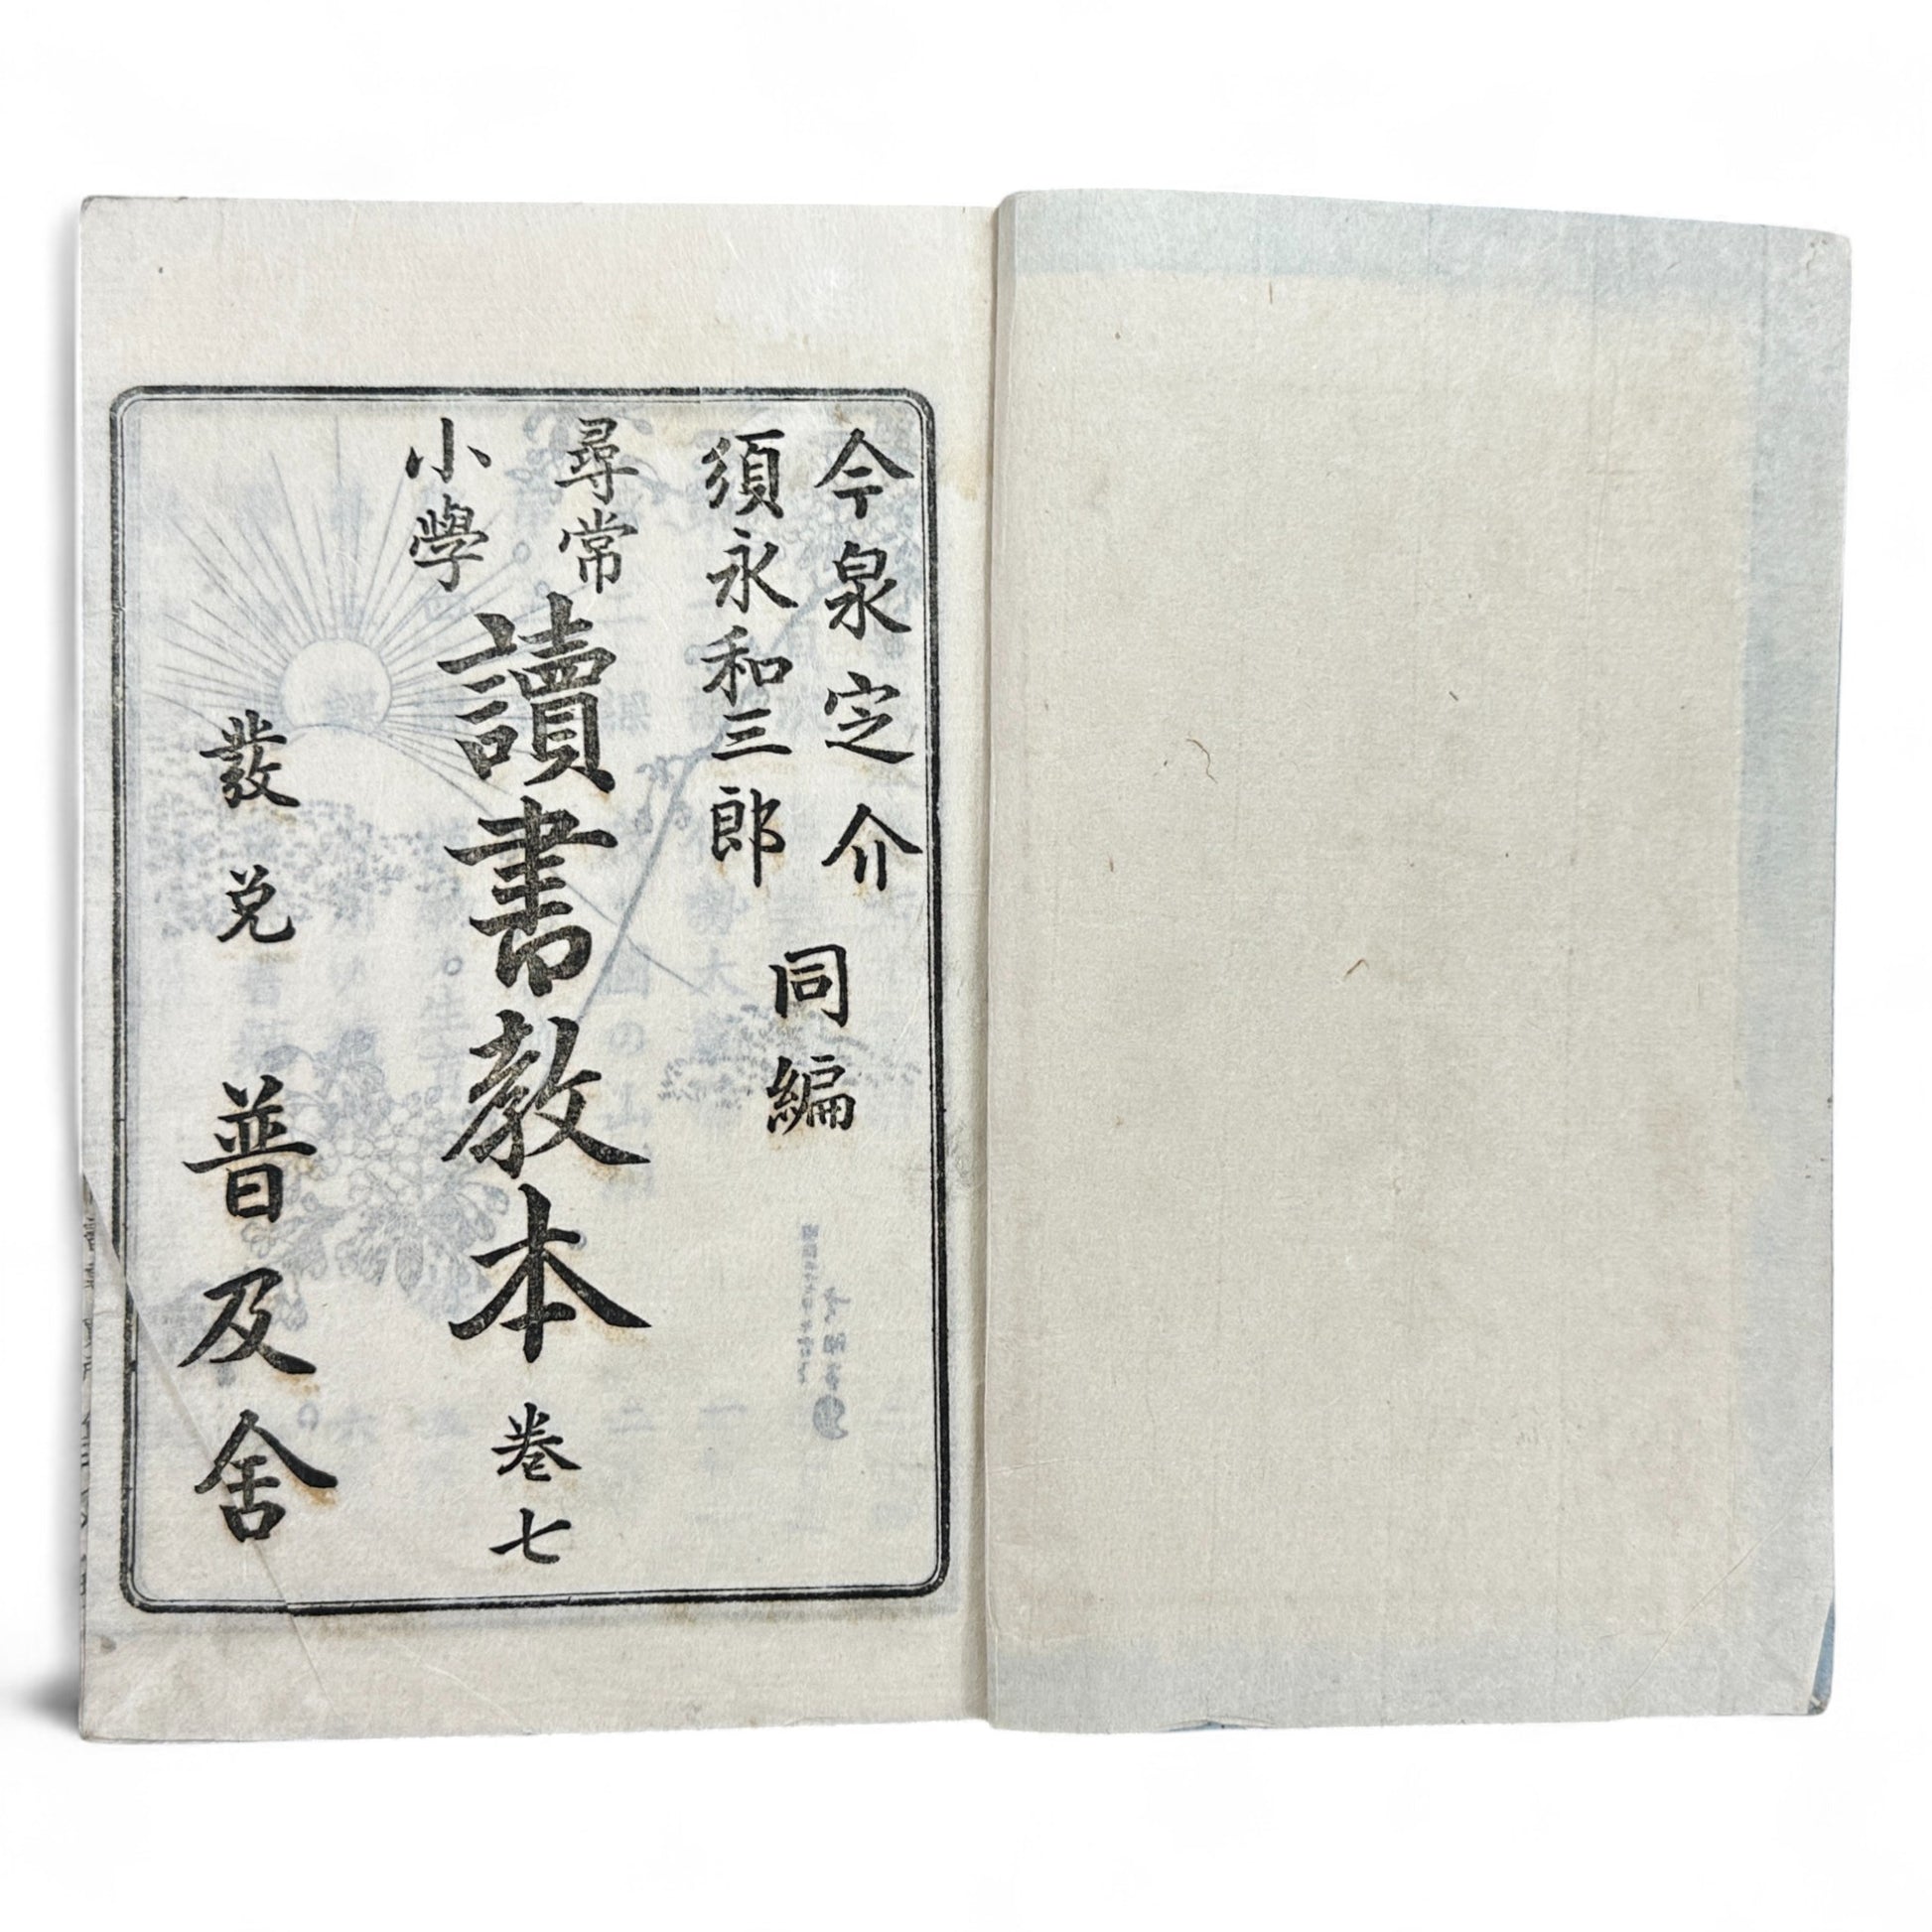 今泉定介
須永和三郎
同編
尋常
小學
讀書教本 巻七
發兌 普及舍